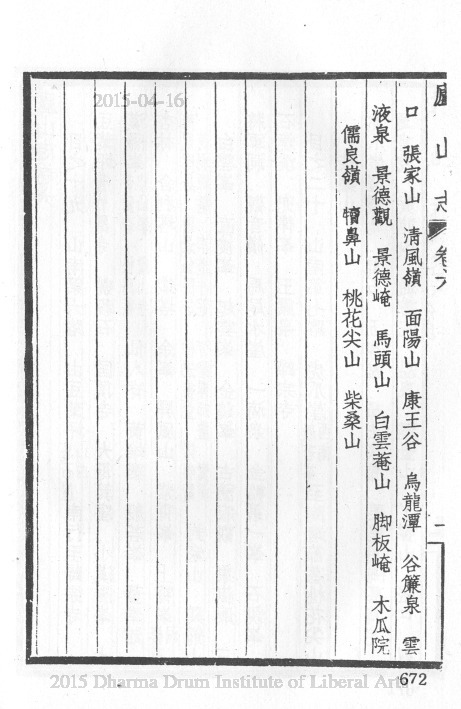 廬山志 卷六 一
口 張家山 清風嶺 面陽山 康王谷 烏龍潭 谷簾泉 雲
液泉 景德觀 景德崦 馬頭山 白雲菴山 脚板崦 木瓜院
儒良嶺 犢鼻山 桃花尖山 柴桑山
672
2015-04-16
2015 Dharma Drum Institute of Liberal Arts